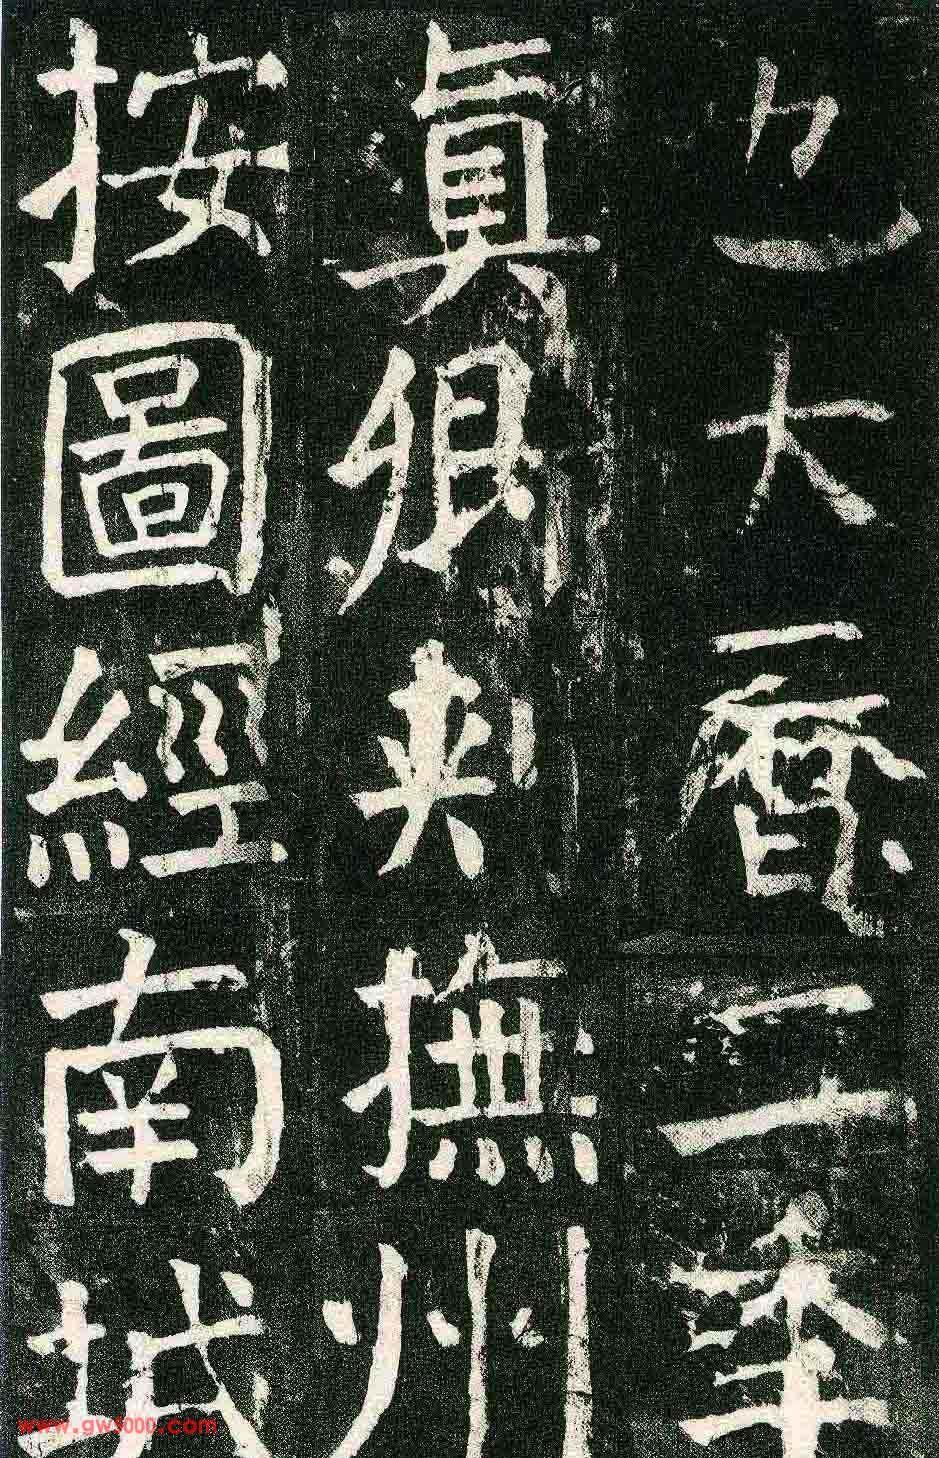 也大曆三年
真卿刺撫州
按圖經南城
www.gw5000.com